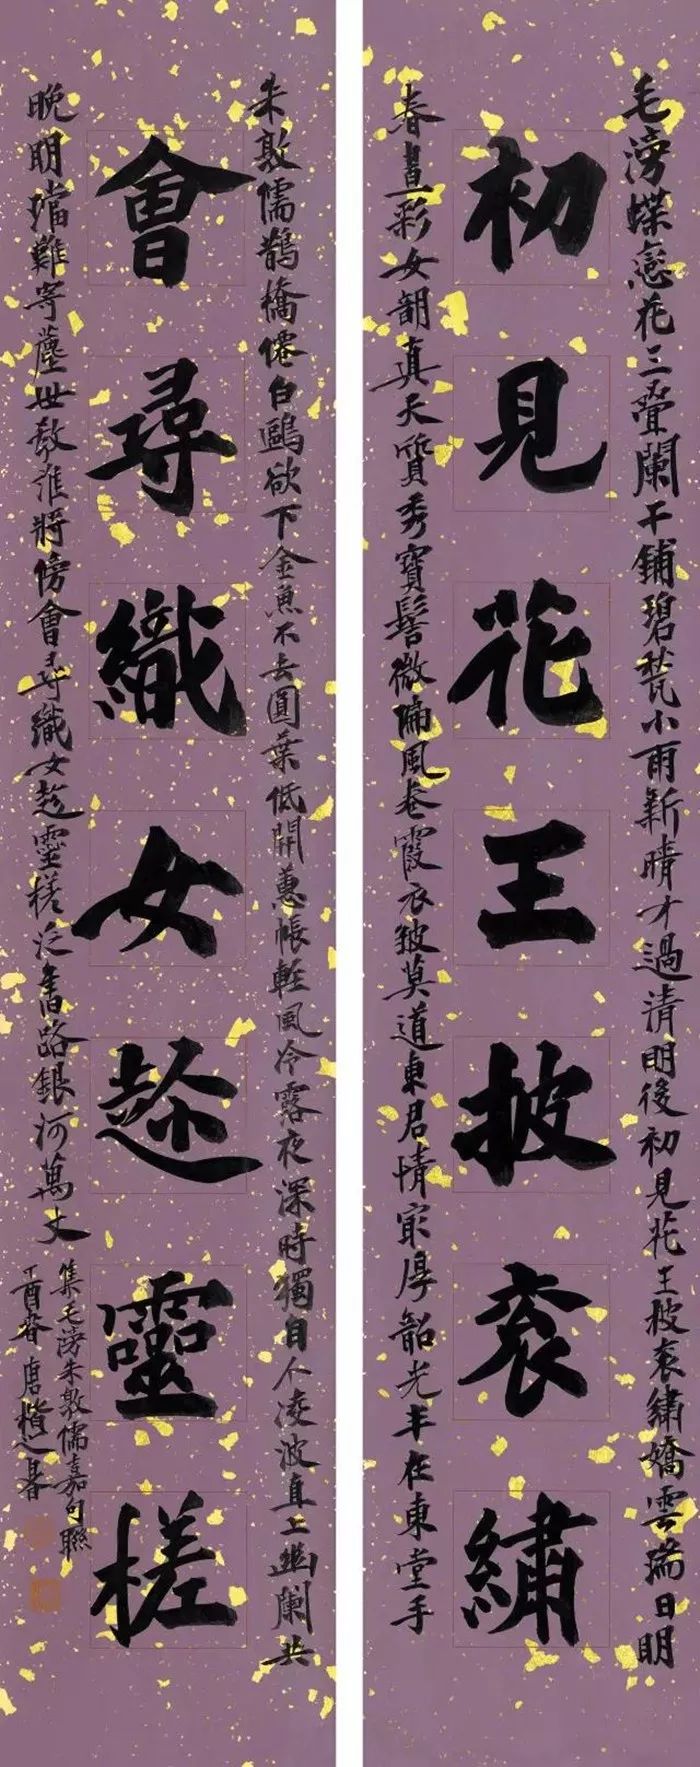 毛滂蝶戀花三疊闌干鋪碧甃小雨新晴才過清明後初見花王披衮繡嬌雲瑞日明
初見花王披衮繡
春晝彩女朝真天質秀寶髻微偏風卷霞衣皺莫道東君情冣厚韶光半在東堂手
朱敦儒鵲橋僊白鷗欲下金魚不去圓葉低開蕙帳輕風冷露夜深時獨自个凌波直上幽闌共
會尋織女趂靈槎
晚明璫難寄塵世教誰將傍會尋織女趂靈槎泛舊路銀河萬丈
集毛滂朱敦儒嘉句聯
丁酉春唐楷之書